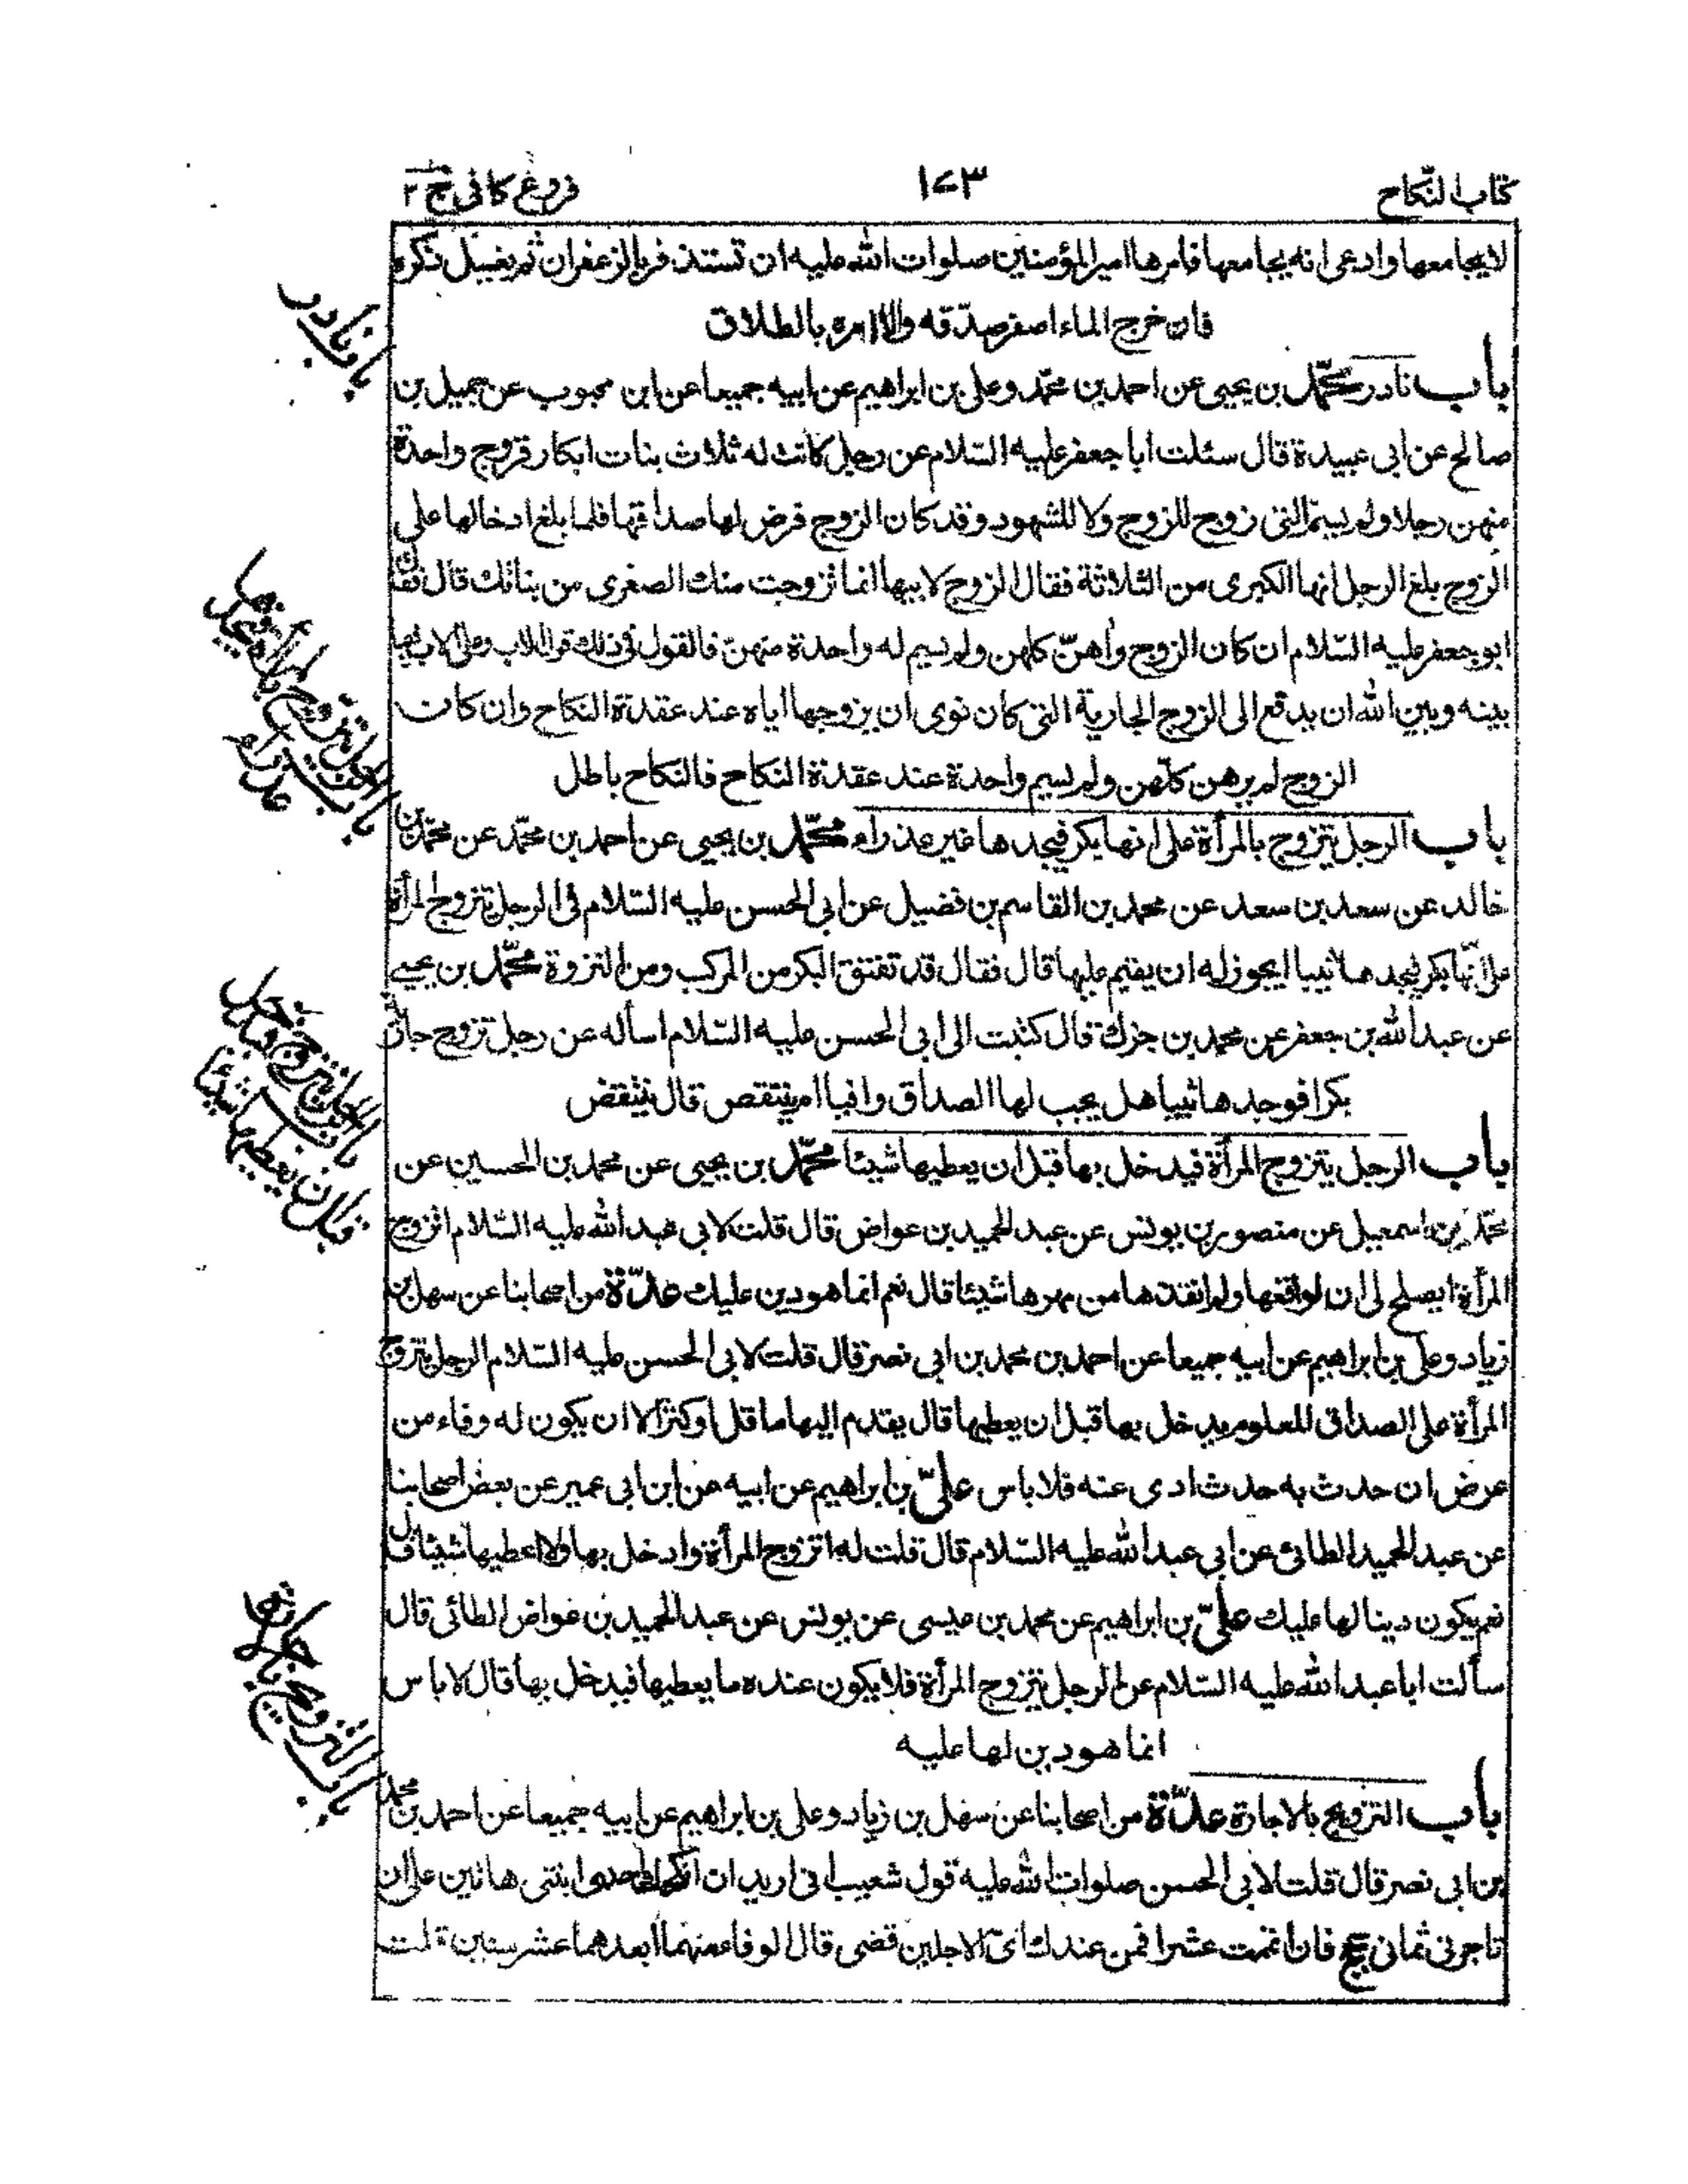 كتاب النّكاح
١٧٣
فروع كافى ج ٢
لايجامعها وادعى انه يجامعها فامرها امير المؤمنين صلوات الله عليه ان تستذفر بالزعفران ثم يغسل ذكره
فان خرج الماء اصفر صدّقه والا امره بالطلاق
باب نادر محمّد بن يحيى عن احمد بن محمّد وعلى بن ابراهيم عن ابيه جميعا عن ابن محبوب عن جميل بن
صالح عن ابى عبيدة قال سئلت ابا جعفر عليه السّلام عن رجل كانت له ثلاث بنات ابكار فزوج واحدة
منهن رجلا ولم يسمّ التى زوج للزوج ولا للشهود وقد كان الزوج فرض لها صداقها فلما بلغ ادخالها على
الزوج بلغ الرجل انها الكبرى من الثلاثة فقال الزوج لابيها انما تزوجت منك الصغرى من بناتك قال فقال
ابو جعفر عليه السّلام ان كان الزوج راهنّ كلهن ولم يسم له واحدة منهنّ فالقول فى ذلك قول الاب وعلى الاب فيما
بينه وبين الله ان يدفع الى الزوج الجارية التى كان نوى ان يزوجها اياه عند عقدة النكاح وان كان
الزوج لم يرهن كلّهن ولم يسم واحدة عند عقدة النكاح فالنكاح باطل
باب الرجل يتزوج بالمرأة على انها بكر فيجدها غير عذراء محمّد بن يحيى عن احمد بن محمّد عن محمّد بن
خالد عن سعد بن سعد عن محمد بن القاسم بن فضيل عن ابى الحسن عليه السّلام فى الرجل يتزوج المرأة
على انّها بكر فيجدها ثيبا ايجوز له ان يقيم عليها قال فقال قد تفتق البكر من المركب ومن النزوة محمّد بن يحيى
عن عبد الله بن جعفر عن محمد بن جزك قال كتبت الى ابى الحسن عليه السّلام اسأله عن رجل تزوج جارية
بكرا فوجدها ثيبا هل يجب لها الصداق وافيا ام ينتقص قال ينتقص
باب الرجل يتزوج المرأة فيدخل بها قبل ان يعطيها شيئا محمّد بن يحيى عن محمد بن الحسين عن
محمّد بن اسمعيل عن منصور بن يونس عن عبد الحميد بن عواض قال قلت لابى عبد الله عليه السّلام اتزوج
المرأة ايصلح لى ان اواقعها ولم انقدها من مهرها شيئا قال نعم انما هو دين عليك عدّة من اصحابنا عن سهل بن
زياد وعلى بن ابراهيم عن ابيه جميعا عن احمد بن محمد بن ابى نصر قال قلت لابى الحسن عليه السّلام الرجل يتزوج
المرأة على الصداق المعلوم يدخل بها قبل ان يعطيها قال يقدم اليها ما قل او كثر الا ان يكون له وفاء من
عرض ان حدث به حدث ادى عنه فلا باس علىّ بن ابراهيم عن ابيه عن ابن ابى عمير عن بعض اصحابنا
عن عبد الحميد الطائى عن ابى عبد الله عليه السّلام قال قلت له اتزوج المرأة وادخل بها ولا اعطيها شيئا قال
نعم يكون دينا لها عليك علىّ بن ابراهيم عن محمد بن عيسى عن يونس عن عبد الحميد بن عواض الطائى قال
سألت ابا عبد الله عليه السّلام عن الرجل يتزوج المرأة فلا يكون عنده ما يعطيها فيدخل بها قال لا باس
انما هو دين لها عليه
باب التزويج بالاجارة عدّة من اصحابنا عن سهل بن زياد وعلى بن ابراهيم عن ابيه جميعا عن احمد بن محمد
بن ابى نصر قال قلت لابى الحسن صلوات الله عليه قول شعيب انى اريد ان انكحك احدى ابنتى هاتين على ان
تاجرنى ثمانى حجج فان اتممت عشرا فمن عندك اىّ الاجلين قضى قال الوفاء منهما ابعدهما عشر سنين قلت
باب نادر
باب الرجل يتزوج بالمرأة على انها بكر فيجدها
غير عذراء
باب الرجل يتزوج المرأة فيدخل بها
قبل ان يعطيها شيئا
باب التزويج بالاجارة